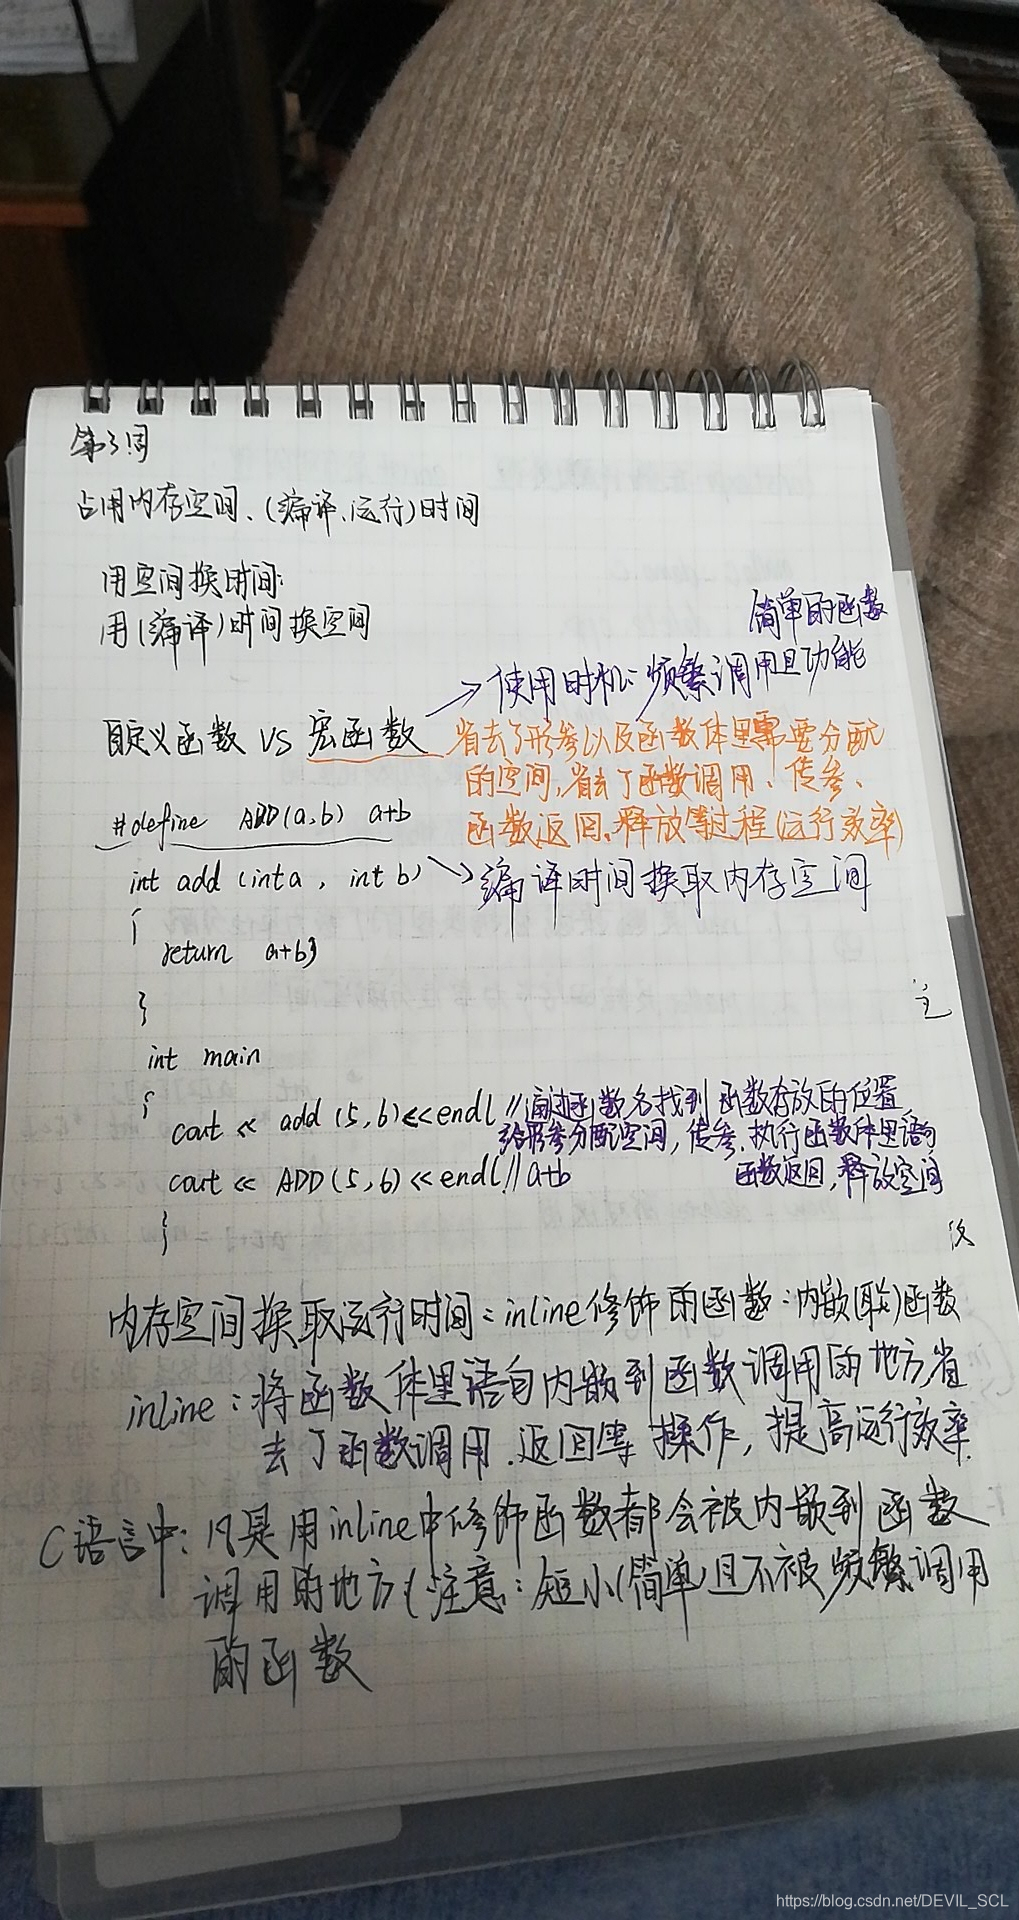 第3周
占用内存空间、(编译、运行)时间
用空间换时间:
用(编译)时间换空间
简单的函数
→使用时机: 频繁调用且功能
自定义函数 VS 宏函数
省去了形参以及函数体里需要分配
的空间,省去了函数调用、传参、
函数返回、释放等过程(运行效率)
#define ADD(a,b) a+b
int add (int a , int b)
→编译时间换取内存空间
{
return a+b;
}
int main
{
cout << add (5,6)<<endl //通过函数名找到函数存放的位置,
给形参分配空间,传参、执行函数体里语句
函数返回,释放空间
cout << ADD(5,6)<<endl;//a+b
}
内存空间换取运行时间:inline修饰的函数:内嵌(联)函数
inline:将函数体里语句内嵌到函数调用的地方,省
去了函数调用、返回等操作,提高运行效率.
C语言中:凡是用inline中修饰函数都会被内嵌到函数
调用的地方(注意:短小(简单)且不被频繁调用
的函数
https://blog.csdn.net/DEVIL_SCL